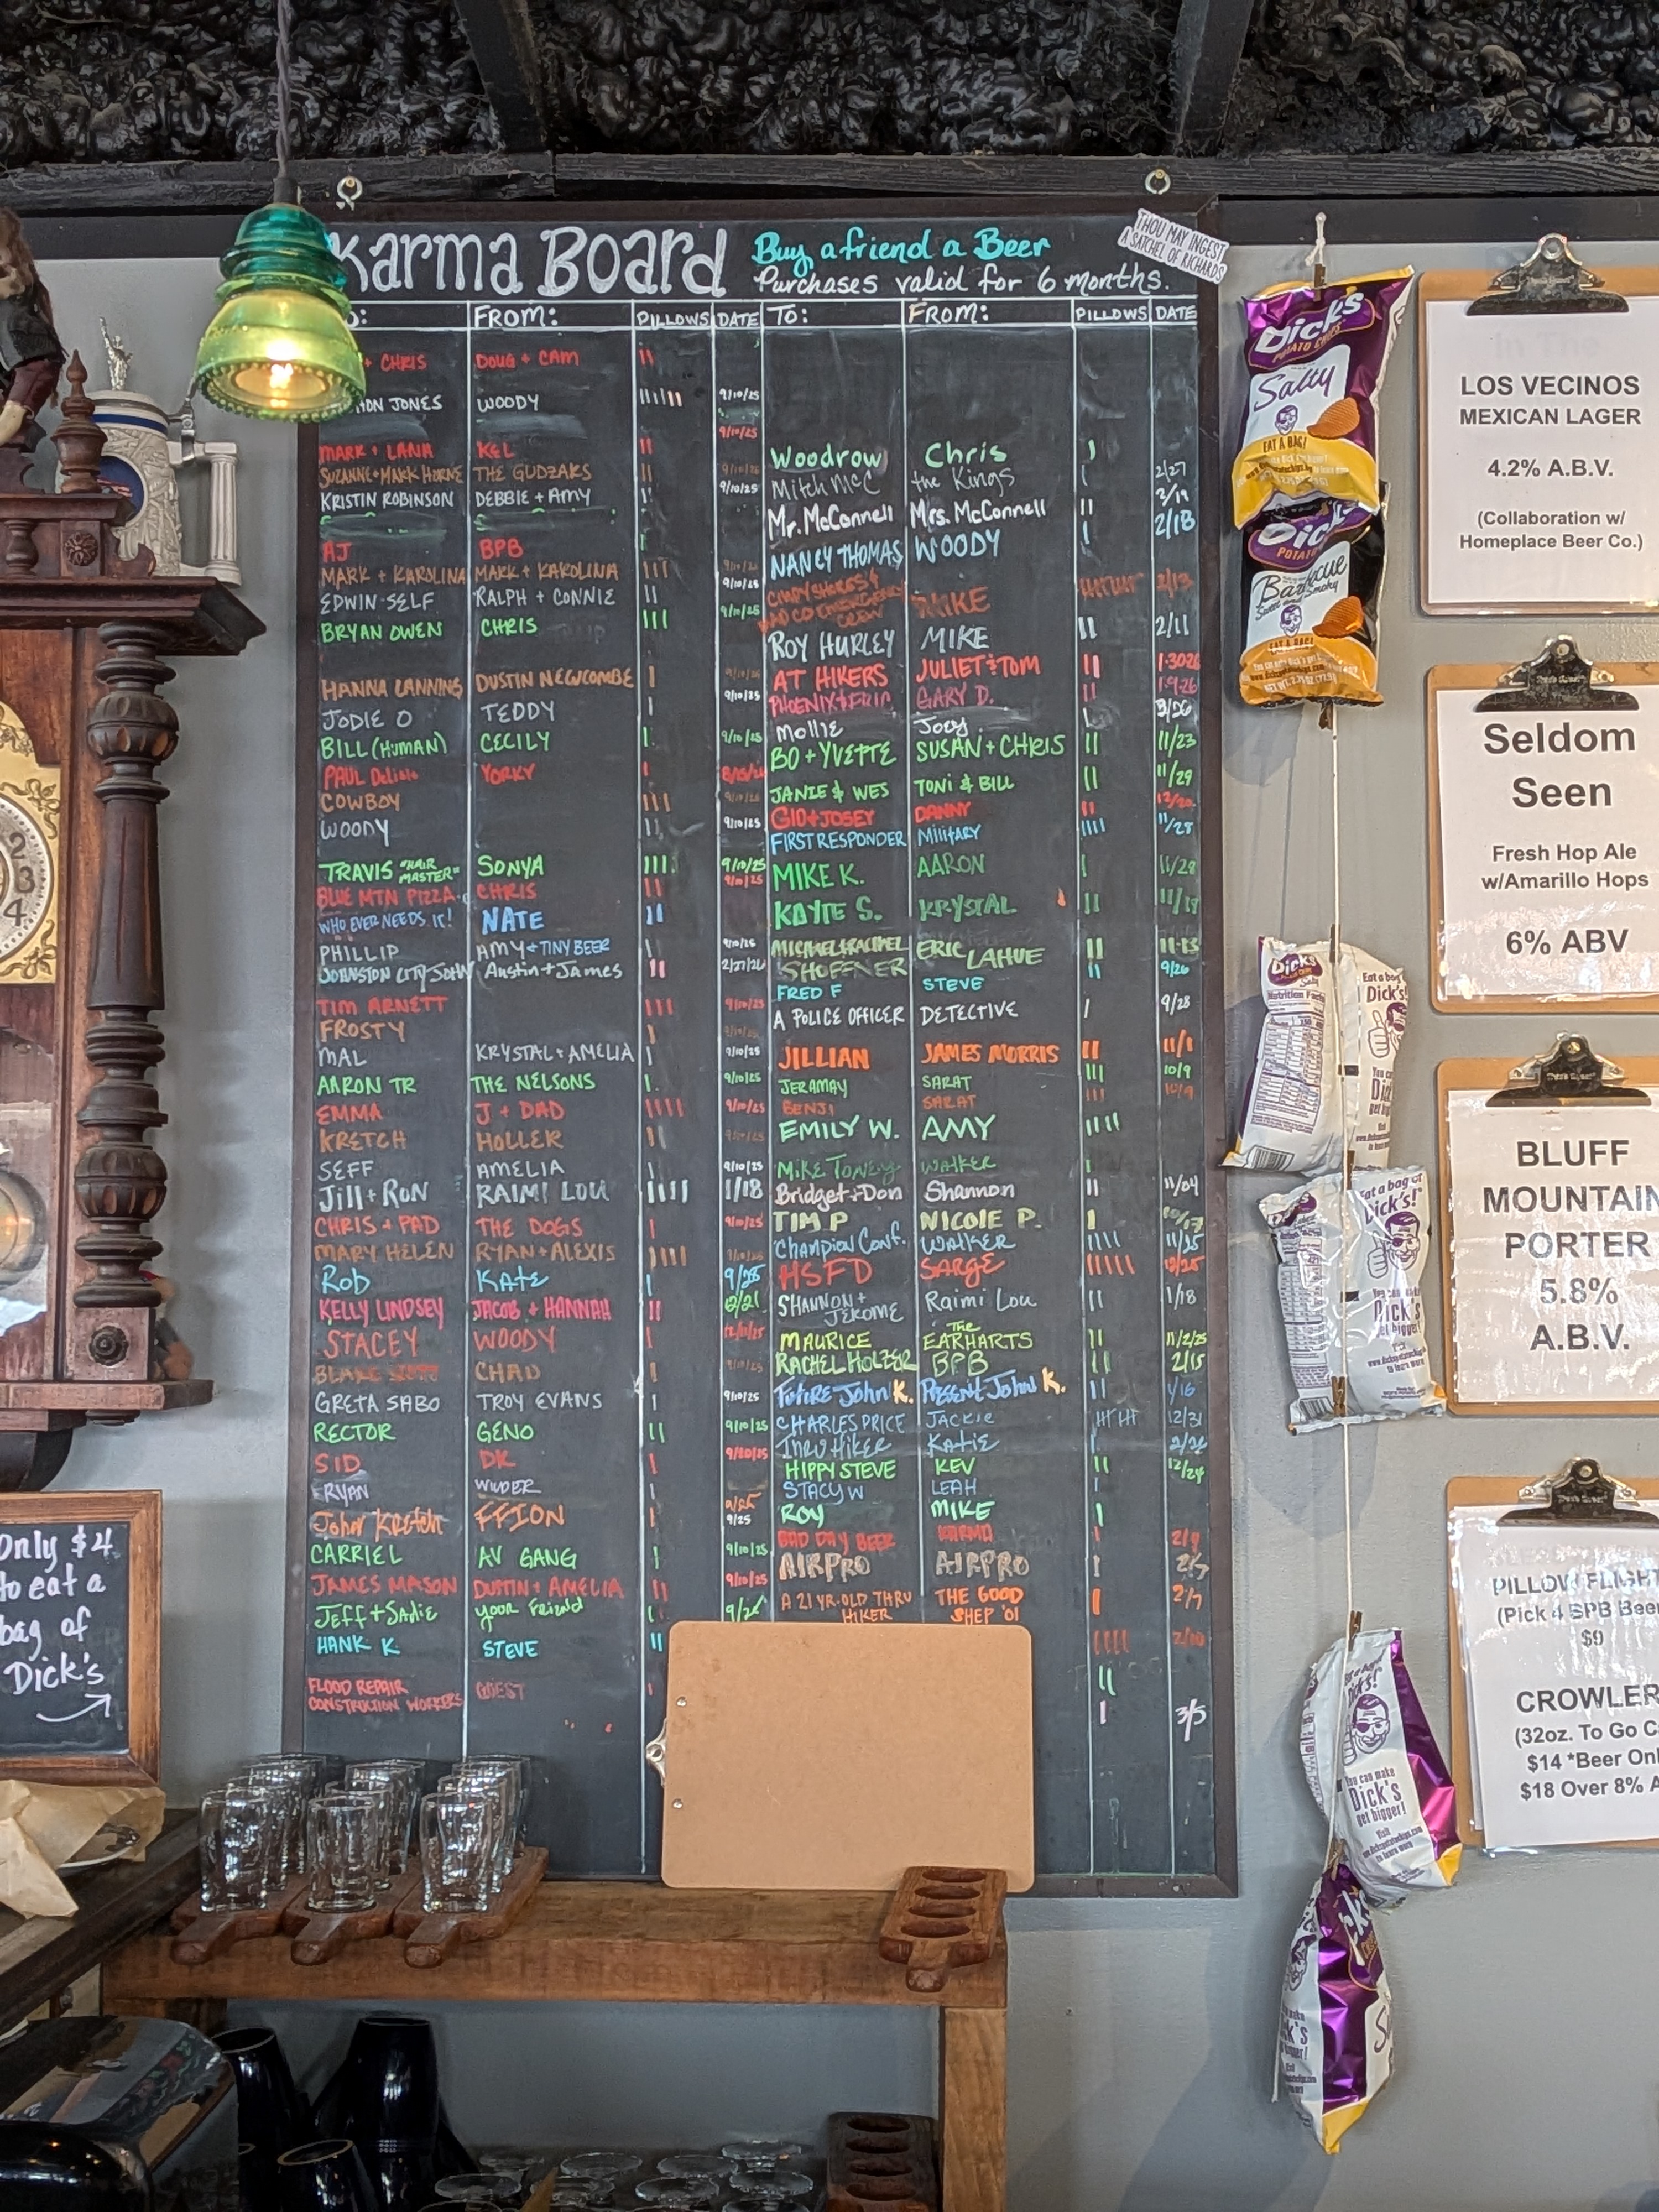 Karma Board
Buy a friend a Beer
Purchases valid for 6 months.
THOU MAY INGEST
A SATCHEL OF RICHARDS
FROM: PILLOWS DATE
+ CHRIS DOUG + CAM
JONES WOODY 9/10/25
9/10/25
MARK + LANA KEL
SUZANNE + MARK HORNE THE GUDZAKS 9/10/25
KRISTIN ROBINSON DEBBIE + AMY 9/10/25
AJ BPB
MARK + KAROLINA MARK + KAROLINA 9/10/25
EDWIN SELF RALPH + CONNIE 9/10/25
BRYAN OWEN CHRIS 9/10/25
HANNA LANNING DUSTIN NEWCOMBE 9/10/25
JODIE O TEDDY 9/10/25
BILL (HUMAN) CECILY 9/10/25
PAUL YORKY
COWBOY 9/10/25
WOODY 9/10/25
TRAVIS "HAIR MASTER" SONYA 9/10/25
BLUE MTN PIZZA CHRIS 9/10/25
WHO EVER NEEDS IT! NATE
PHILLIP AMY + TINY BEER 9/10/25
JOHNSTON CITY JOHN Austin + James 2/27/26
TIM ARNETT 9/10/25
FROSTY
MAL KRYSTAL + AMELIA 9/10/25
AARON TR THE NELSONS 9/10/25
EMMA J + DAD 9/10/25
KRETCH HOLLER
SEFF AMELIA 9/10/25
Jill + Ron RAIMI LOU 1/18
CHRIS + PAD THE DOGS 9/10/25
MARY HELEN RYAN + ALEXIS 9/10/25
Rob Kate 9/25
KELLY LINDSEY JACOB + HANNAH
STACEY WOODY
BLAKE CHAD 9/10/25
GRETA SABO TROY EVANS 9/10/25
RECTOR GENO 9/10/25
SID DK
RYAN WILDER
John Kretch FFION 9/25
CARRIEL AV GANG 9/10/25
JAMES MASON DUSTIN + AMELIA 9/10/25
Jeff + Sadie your friend
HANK K STEVE
FLOOD REPAIR GUEST
CONSTRUCTION WORKERS
TO: FROM: PILLOWS DATE
Woodrow Chris
Mitch McC the Kings 2/27
Mr. McConnell Mrs. McConnell 2/18
NANCY THOMAS WOODY
CREW MIKE 2/13
ROY HURLEY MIKE 2/11
AT HIKERS JULIET & TOM
PHOENIX + ERIC GARY D. 1-9-26
Mollie Joey
BO + YVETTE SUSAN + CHRIS 11/23
JANIE & WES TONI & BILL 11/29
GIO + JOSEY DANNY
FIRST RESPONDER MILITARY 11/28
MIKE K. AARON 11/28
KAYTE S. KRYSTAL
SHOFFNER ERIC LAHUE
FRED F STEVE 9/26
A POLICE OFFICER DETECTIVE 9/28
JILLIAN JAMES MORRIS 11/1
JERAMAY SARAT 10/9
BENJI SARAT 10/9
EMILY W. AMY
MIKE TONEY WALKER
Bridget + Don Shannon 11/04
TIM P NICOLE P. 10/17
Champion Conf. WALKER 11/25
HSFD SARGE
SHANNON + JEROME Raimi Lou 1/18
MAURICE The EARHARTS 11/2/25
RACHEL HOLZER BPB 2/15
FUTURE JOHN K. PRESENT JOHN K. 1/16
CHARLES PRICE JACKIE 12/31
Thru Hiker Katie
HIPPY STEVE KEV 12/24
STACY W LEAH
ROY MIKE
BAD DAY BEER KARMA
AIRPRO AIRPRO
A 21 YR. OLD THRU HIKER THE GOOD SHEP '01 2/7
3/5
Dick's
POTATO CHIPS
Salty
EAT A BAG!
Dick's
Barbecue
Sweet and Smoky
EAT A BAG!
Dick's
Nutrition Facts
Eat a bag
Dick's!
Eat a bag of
Dick's!
You can make
Dick's
get bigger!
LOS VECINOS
MEXICAN LAGER
4.2% A.B.V.
(Collaboration w/
Homeplace Beer Co.)
Seldom
Seen
Fresh Hop Ale
w/Amarillo Hops
6% ABV
BLUFF
MOUNTAIN
PORTER
5.8%
A.B.V.
PILLOW FLIGHT
(Pick 4 BPB Beer
$9
CROWLER
(32oz. To Go
$14 *Beer Onl
$18 Over 8%
Only $4
to eat a
bag of
Dick's
2
3
4